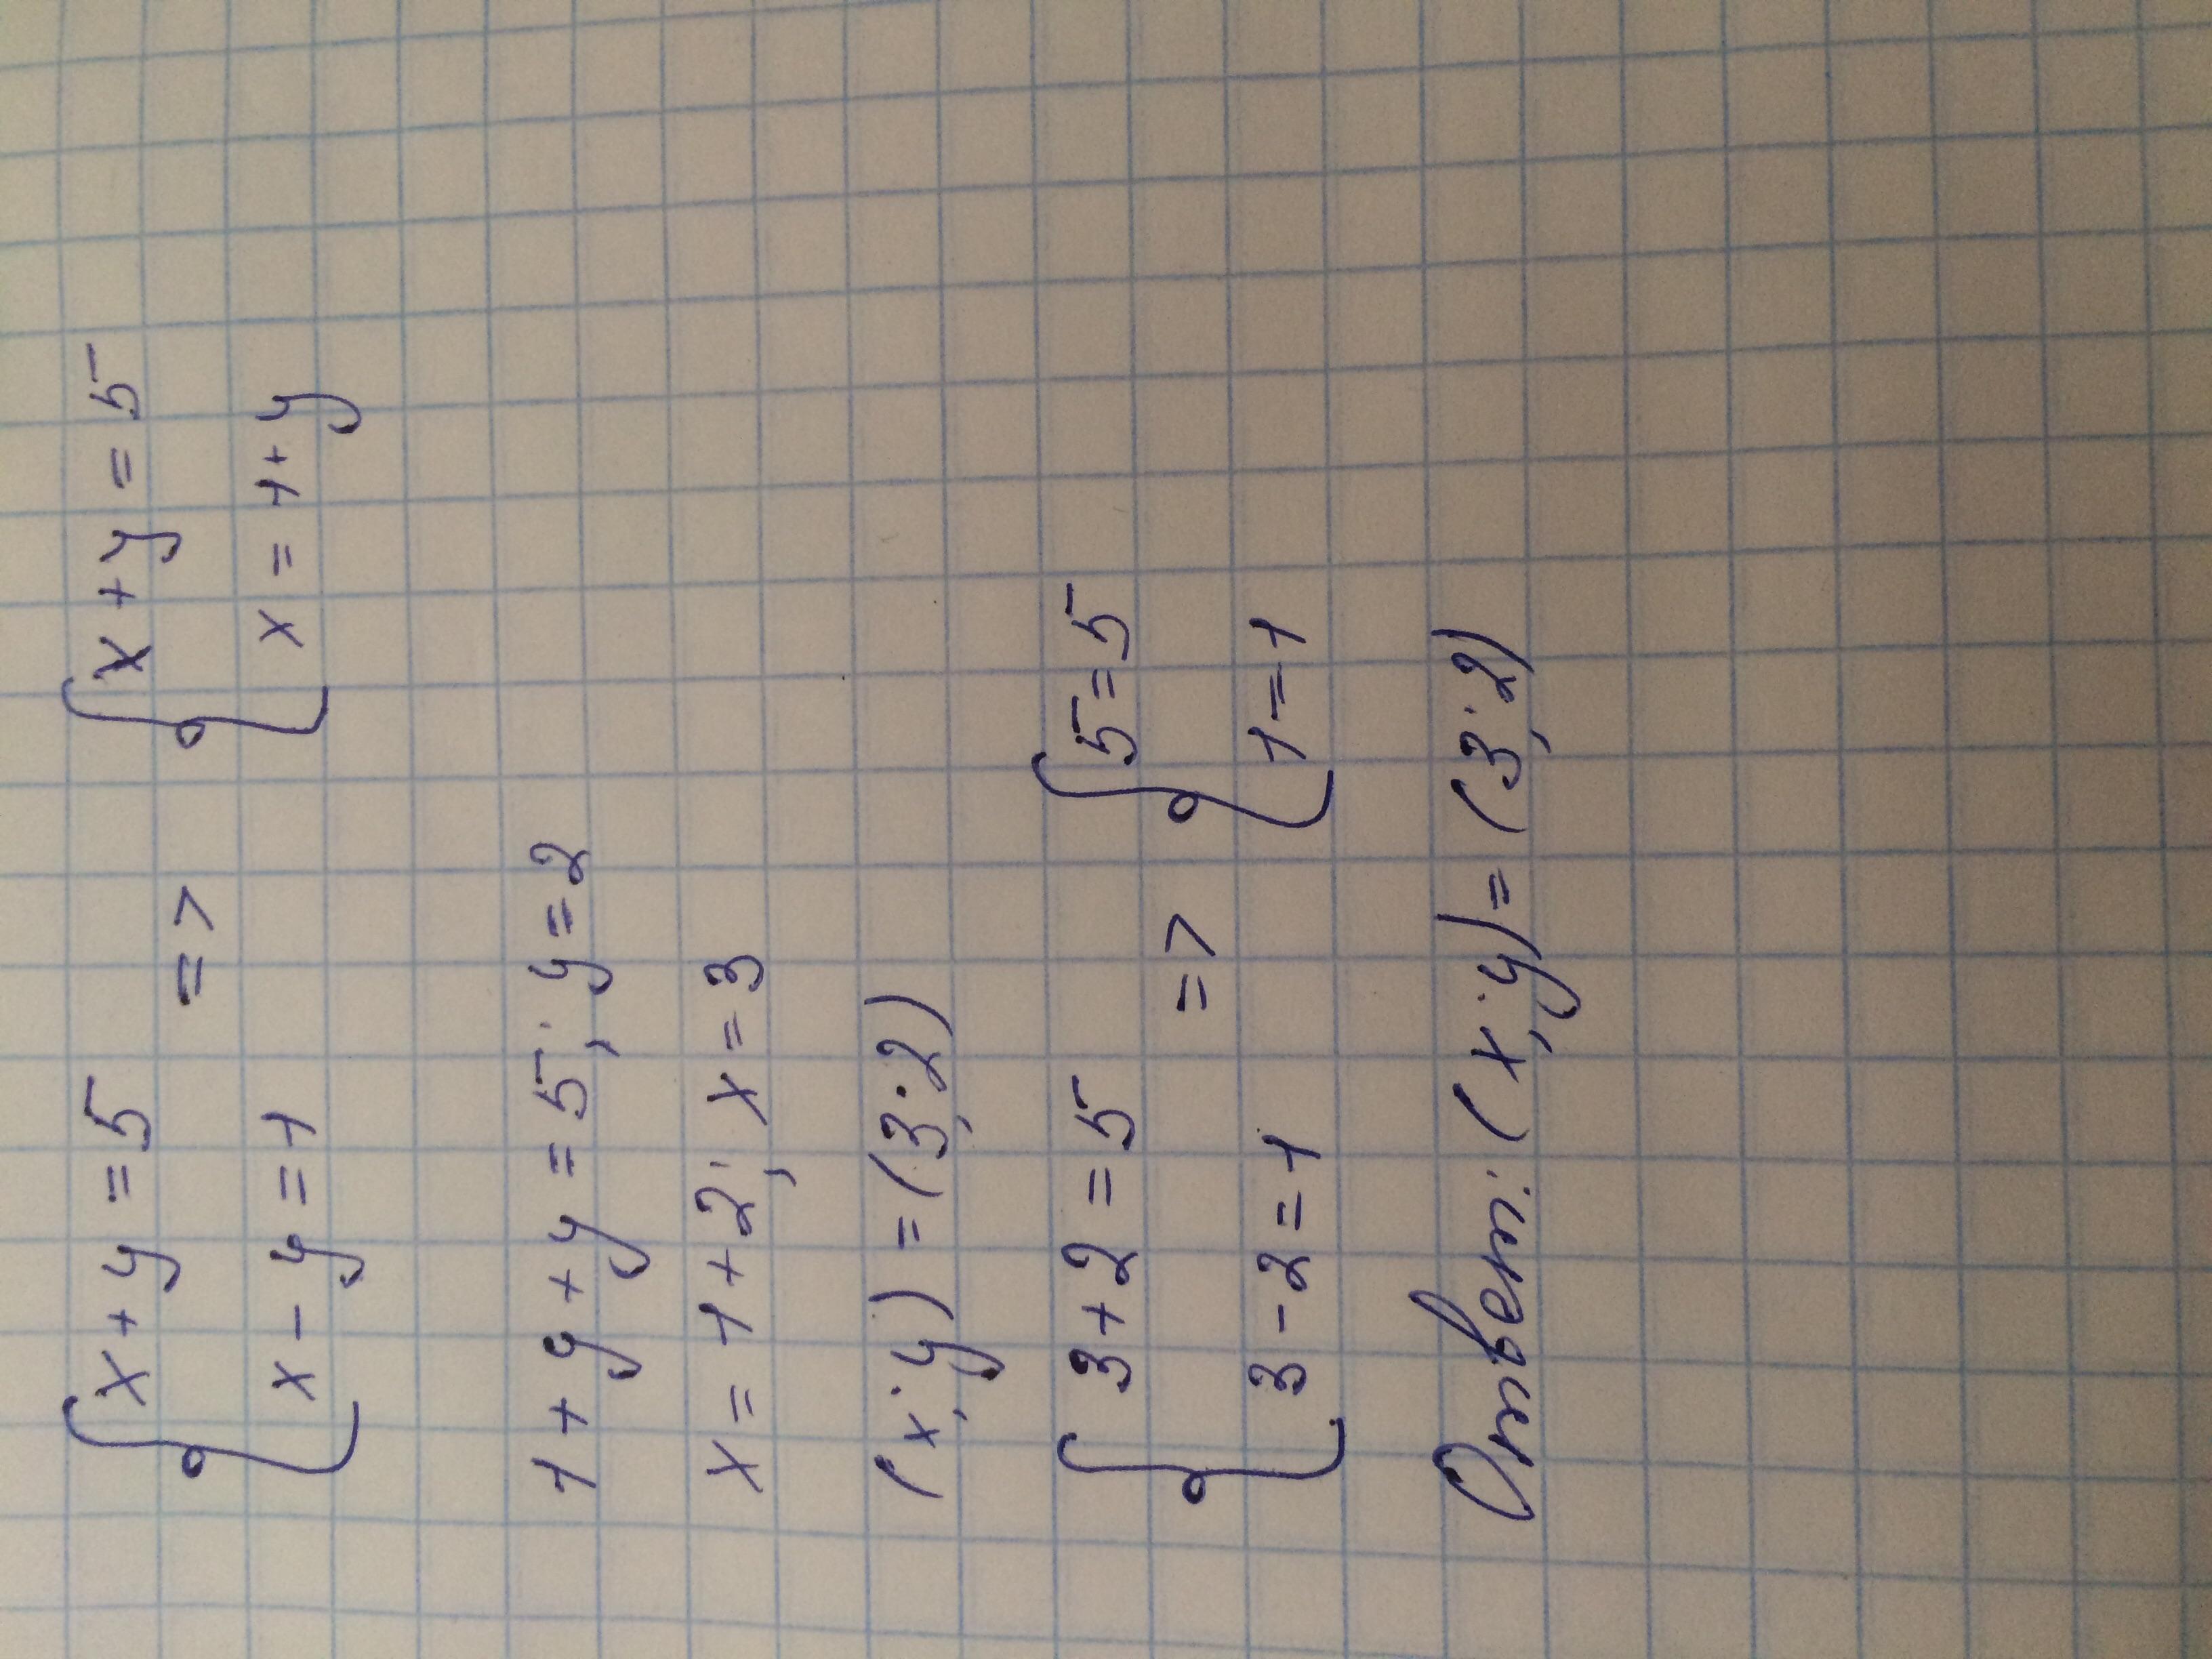 { x + y = 5 => { x + y = 5
x - y = 1 x = 1 + y
1 + y + y = 5; y = 2
x = 1 + 2; x = 3
(x; y) = (3; 2)
{ 3 + 2 = 5 => { 5 = 5
3 - 2 = 1 1 = 1
Ответ: (x; y) = (3; 2)